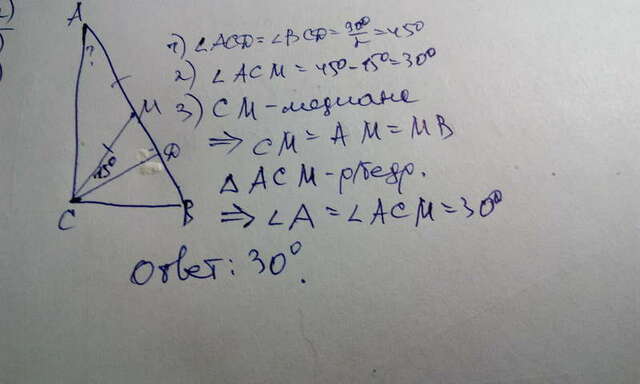 A
?
M
D
15°
C
B
1) ∠ACD = ∠BCD = 90°/2 = 45°
2) ∠ACM = 45° - 15° = 30°
3) CM - медиана
⇒ CM = AM = MB
△ ACM - р/бедр.
⇒ ∠A = ∠ACM = 30°
Ответ: 30°.